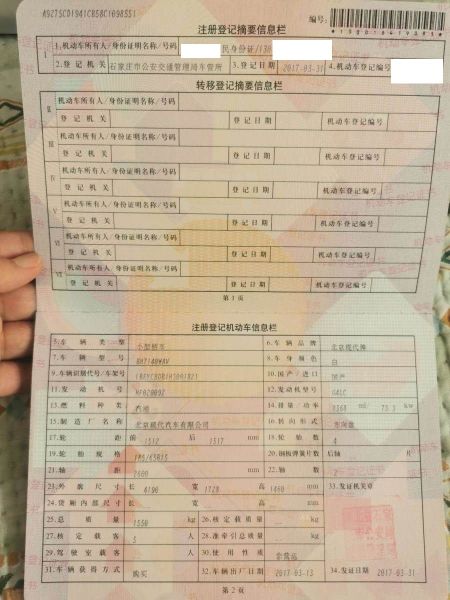 注册登记摘要信息栏
编号:
1.机动车所有人/身份证明名称/号码 民身份证/130
2.登记机关 石家庄市公安交通管理局车管所 3.登记日期 2017-03-31 4.机动车登记编号
转移登记摘要信息栏
Ⅱ 机动车所有人/身份证明名称/号码
登记机关 登记日期 机动车登记编号
Ⅲ 机动车所有人/身份证明名称/号码
登记机关 登记日期 机动车登记编号
Ⅳ 机动车所有人/身份证明名称/号码
登记机关 登记日期 机动车登记编号
Ⅴ 机动车所有人/身份证明名称/号码
登记机关 登记日期 机动车登记编号
Ⅵ 机动车所有人/身份证明名称/号码
登记机关 登记日期 机动车登记编号
Ⅶ 机动车所有人/身份证明名称/号码
登记机关 登记日期 机动车登记编号
第1页
注册登记机动车信息栏
5.车辆类型 小型轿车 6.车辆品牌 北京现代牌
7.车辆型号 8.车身颜色 白
9.车辆识别代号/车架号 10.国产/进口 国产
11.发动机号 12.发动机型号 G4LC
13.燃料种类 汽油 14.排量/功率 1368 ml/ 73.3 kw
15.制造厂名称 北京现代汽车有限公司 16.转向形式 方向盘
17.轮距 前 1512 后 1517 mm 18.轮胎数 4
19.轮胎规格 185/65R15 20.钢板弹簧片数 后轴 片
21.轴距 2600 mm 22.轴数 2
23.外廓尺寸 长 宽 1728 高 1460 mm 33.发证机关章
24.货厢内部尺寸 长 宽 高 mm
25.总质量 1550 kg 26.核定载质量 kg
27.核定载客 5 人 28.准牵引总质量 kg
29.驾驶室载客 人 30.使用性质 非营运
31.车辆获得方式 购买 32.车辆出厂日期 2017-03-13 34.发证日期 2017-03-31
第2页